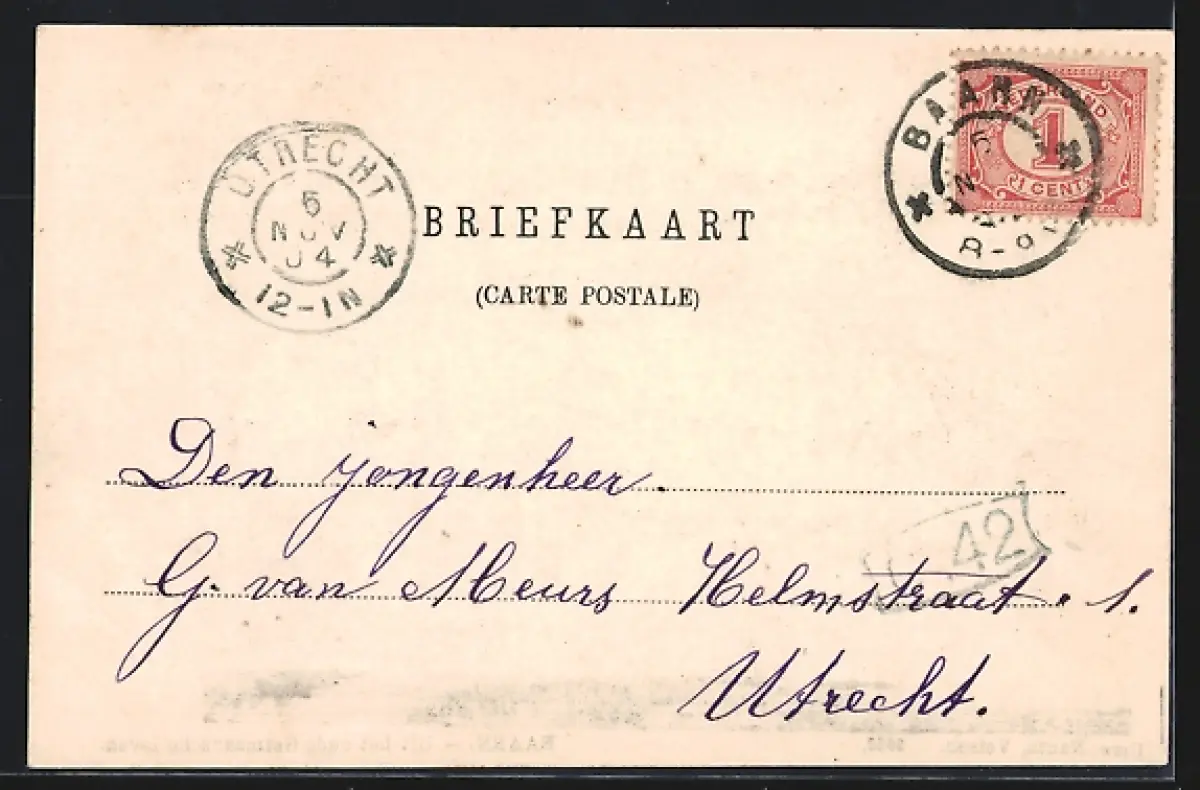 BAARN
5 N
8-9V
NEDERLAND
1
1 CENT
UTRECHT
5
NOV
04
12-1N
BRIEFKAART
(CARTE POSTALE)
Den jongenheer.
G. van Meurs Helmstraat. 1.
42
Utrecht.